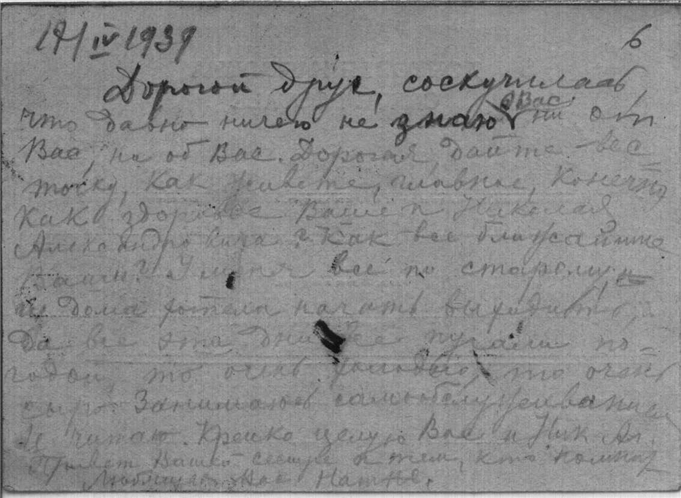 19/IV 1939 6
Дорогой друг, соскучилась,
что давно ничего не знаю о Вас ни от
Вас, ни об Вас. Дорогая, дайте вес-
точку, как живете, главное, конечно
как здоровье Ваше и Николая
Александровича? Как все ближайшие
Ваши? У меня все по старому,
из дома хотела начать выходить,
да все эти дни все пугали по-
годой, то очень холодно, то очень
сыро. Занимаюсь самообслуживанием
и читаю. Крепко целую Вас и Ник. Ал.
Привет Вашей сестре и тем, кто помнит
Любящая Вас